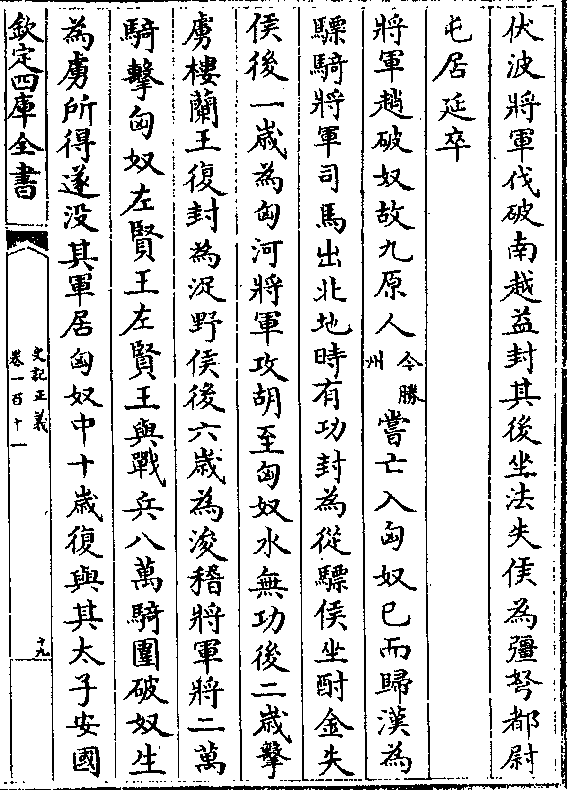 伏波將軍伐破南越益封其後坐法失侯為彊弩都尉
屯居延卒
將軍趙破奴故九原人今勝州嘗亡入匈奴已而歸漢為
驃騎將軍司馬出北地時有功封為從驃侯坐酎金失
侯後一歲為匈河將軍攻胡至匈奴水無功後二歲擊
虜樓蘭王復封為浞野侯後六歲為浚稽將軍將二萬
騎擊匈奴左賢王左賢王與戰兵八萬騎圍破奴生
為虜所得遂沒其軍居匈奴中十歲復與其太子安國
欽定四庫全書
史記正義
卷一百十一
十九